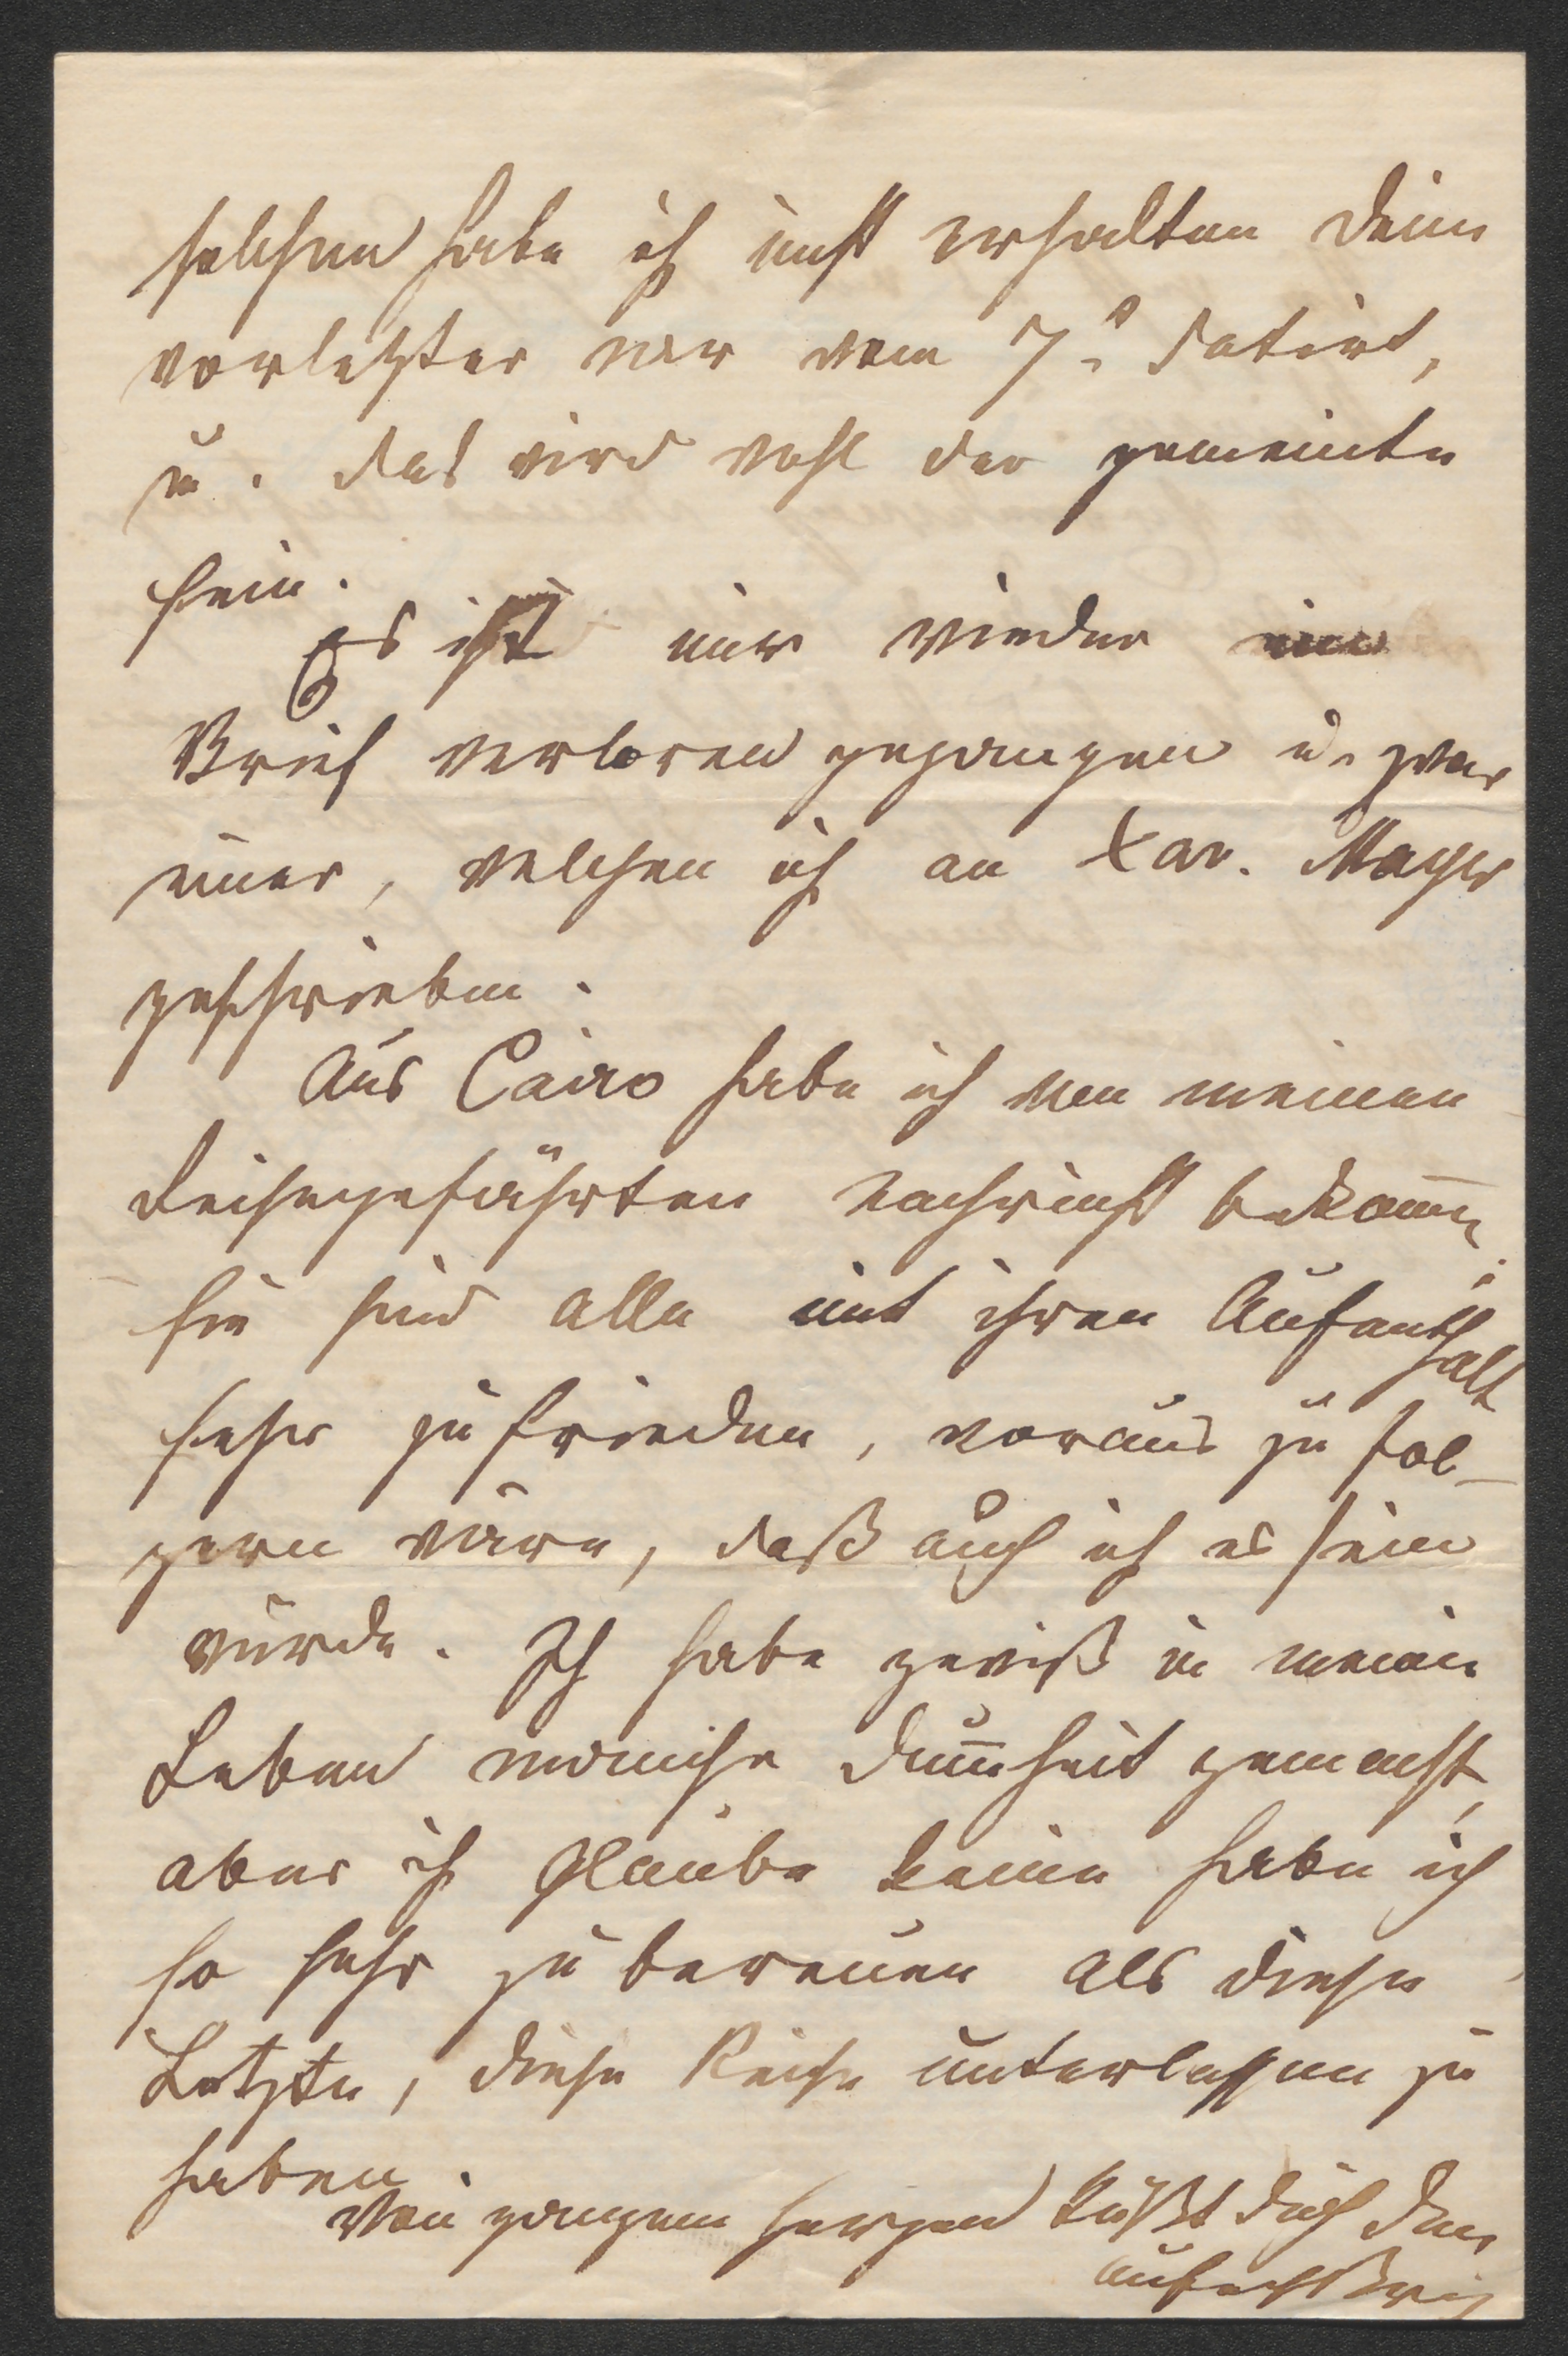 solchen habe ich nicht erhalten Dein
vorletzter war vom 7t datirt,
u. das wird wohl der gemeinte
sein.
Es ist mir wieder ein
Brief verloren gegangen u. zwar
einer, welchen ich an Xav. Mayr
geschrieben.
Aus Cairo habe ich von meinen
Reisegefährten Nachricht bekom̄en
sie sind alle mit ihren Aufenthalt
sehr zufrieden, woraus zu fol-
gern wäre, daß auch ich es sein
würde. Ich habe gewiß in meinen
Leben manche Dum̄heit gemacht,
aber ich glaube keine habe ich
so sehr zu bereuen als diese
Letzte, diese Reise unterlassen zu
haben.
Von ganzem Herzen küßt dich dein